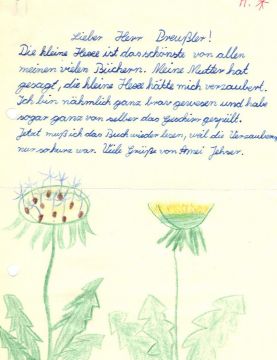 Lieber Herr Breußler!
Die kleine Hexe ist das schönste von allen
meinen vielen Büchern. Meine Mutter hat
gesagt, die kleine Hexe hätte mich verzaubert.
Ich bin nähmlich ganz brav gewesen und habe
sogar ganz von selber das Geschirr gespült.
Jetzt muß ich das Buch wieder lesen, weil die Verzauberung
nur so kurz war. Viele Grüße von